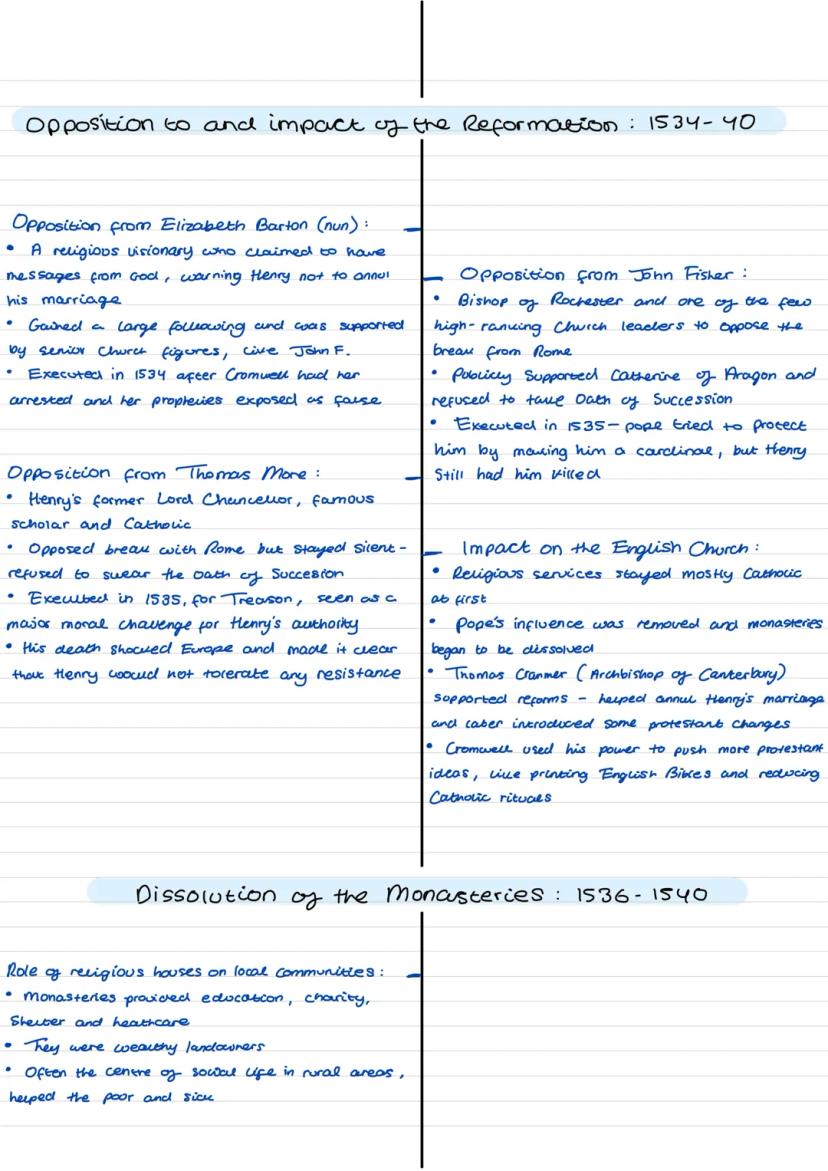 Opposition to and impact of the Reformation : 1534-40
Opposition from Elizabeth Barton (nun) :
• A religious visionary who claimed to have
messages from God, warning Henry not to annul
his marriage
• Gained a large following and was supported
by senior Church figures, like John F.
• Executed in 1534 after Cromwell had her
arrested and her prophecies exposed as false
Opposition from John Fisher :
• Bishop of Rochester and one of the few
high-ranking Church leaders to oppose the
break from Rome
• Publicly supported Catherine of Aragon and
refused to take Oath of Succession
• Executed in 1535 - pope tried to protect
him by making him a cardinal, but Henry
still had him killed
Opposition from Thomas More :
• Henry's former Lord Chancellor, famous
scholar and Catholic
• Opposed break with Rome but stayed silent -
refused to swear the Oath of Succesion
• Executed in 1535, for Treason, seen as a
major moral challenge for Henry's authority
• His death shocked Europe and made it clear
that Henry would not tolerate any resistance
Impact on the English Church :
• Religious services stayed mostly Catholic
at first
• Pope's influence was removed and monasteries
began to be dissolved
• Thomas Cranmer (Archbishop of Canterbury)
supported reforms - helped annul Henry's marriage
and later introduced some protestant changes
• Cromwell used his power to push more protestant
ideas, like printing English Bibles and reducing
Catholic rituals
Dissolution of the Monasteries : 1536-1540
Role of religious houses on local communities :
• Monasteries provided education, charity,
shelter and healthcare
• They were wealthy landowners
• Often the centre of social life in rural areas,
helped the poor and sick